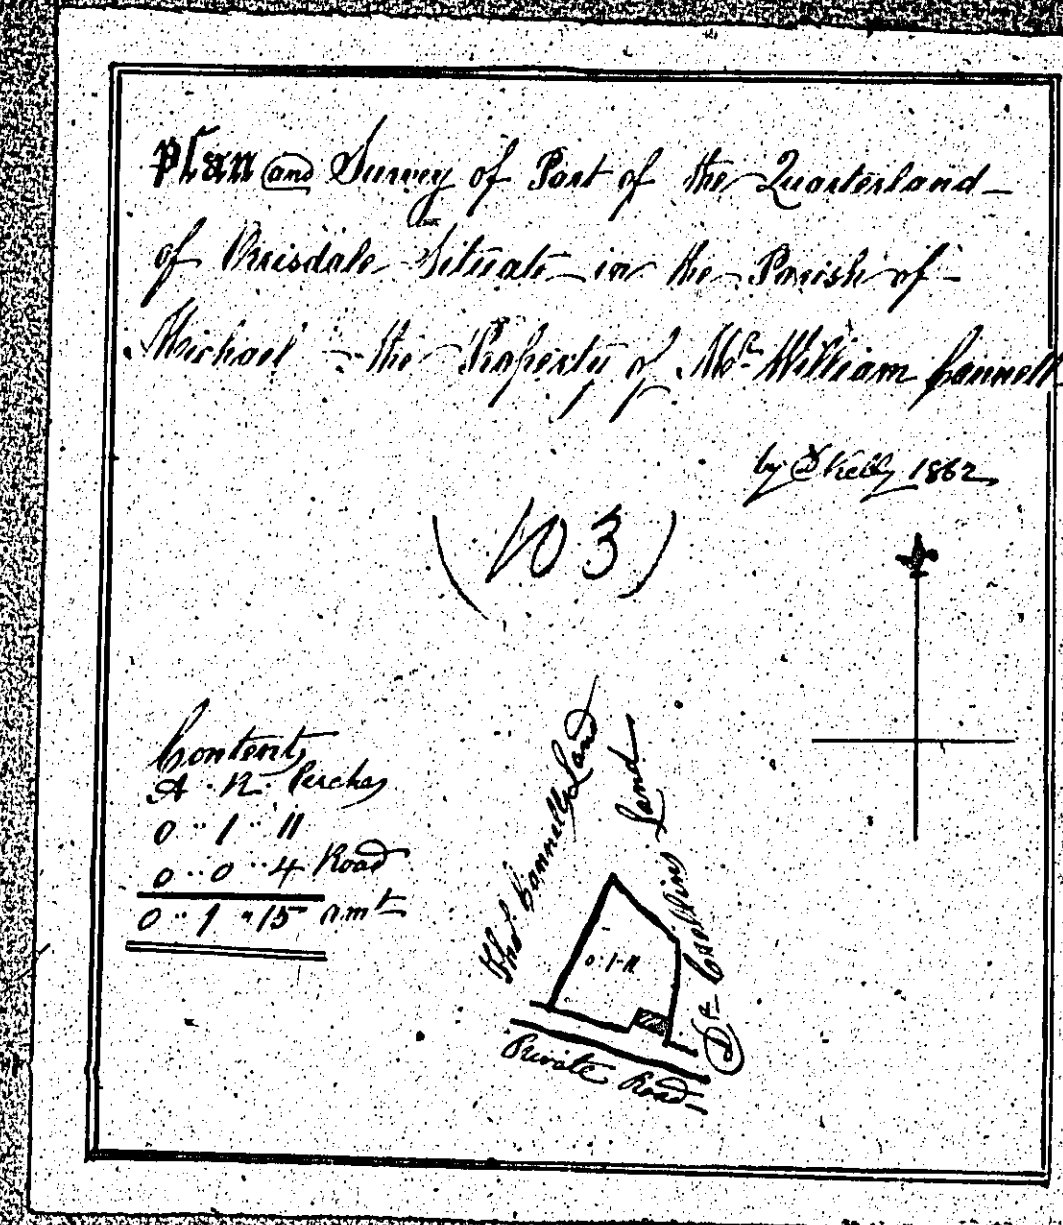 Plan and Survey of Part of the Quarterland
of Orrisdale Situate in the Parish of
Michael the Property of Mr William Cannell
by Kelly 1862
(103)
Content
A. R. Perches
0 .. 1 .. 11
0 .. 0 .. 4 Road
0 .. 1 .. 15 amt
Thos Cannells Land
Dr Land
0-1-11
Private Road